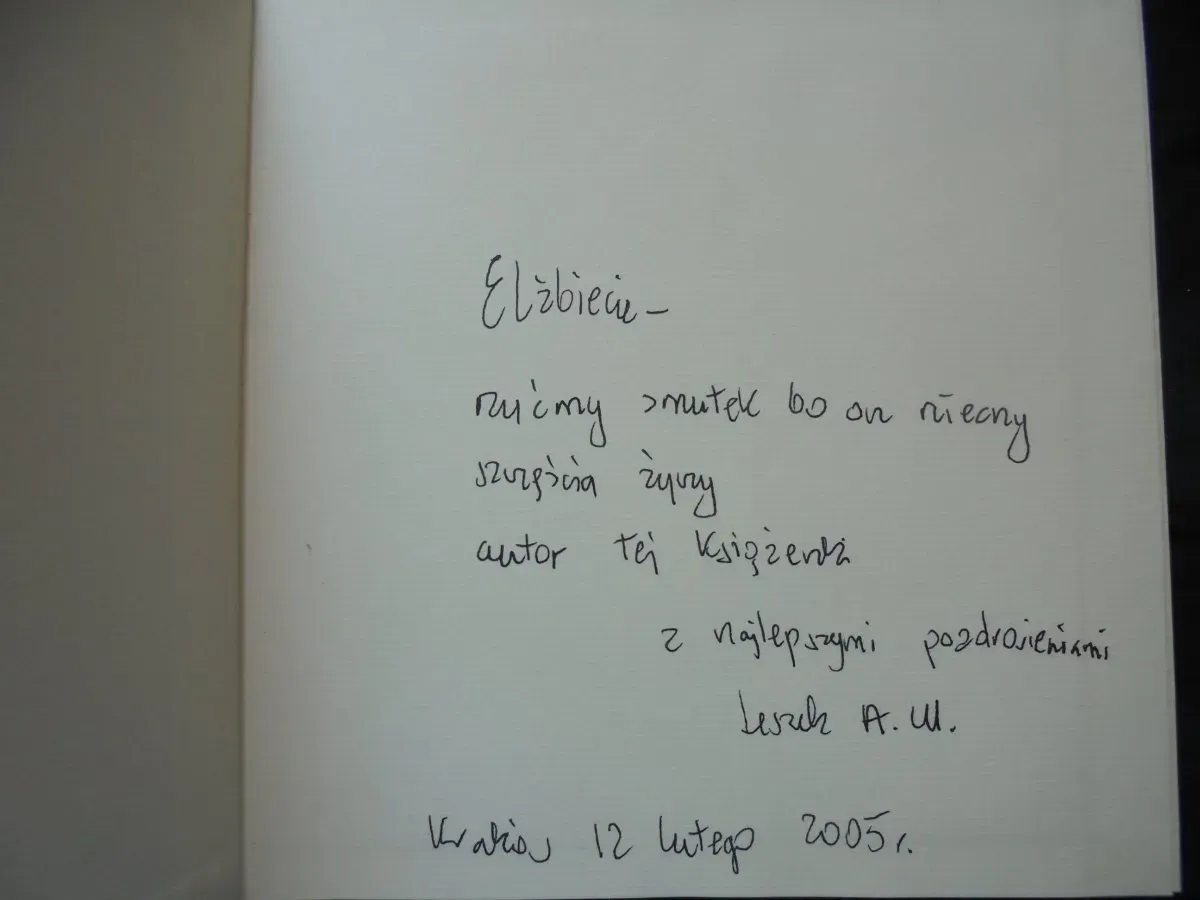 Elżbiecie –
rzućmy smutek bo on niecny
szczęścia życzy
autor tej książeczki
z najlepszymi pozdrowieniami
Leszek A. W.
Kraków 12 lutego 2005 r.